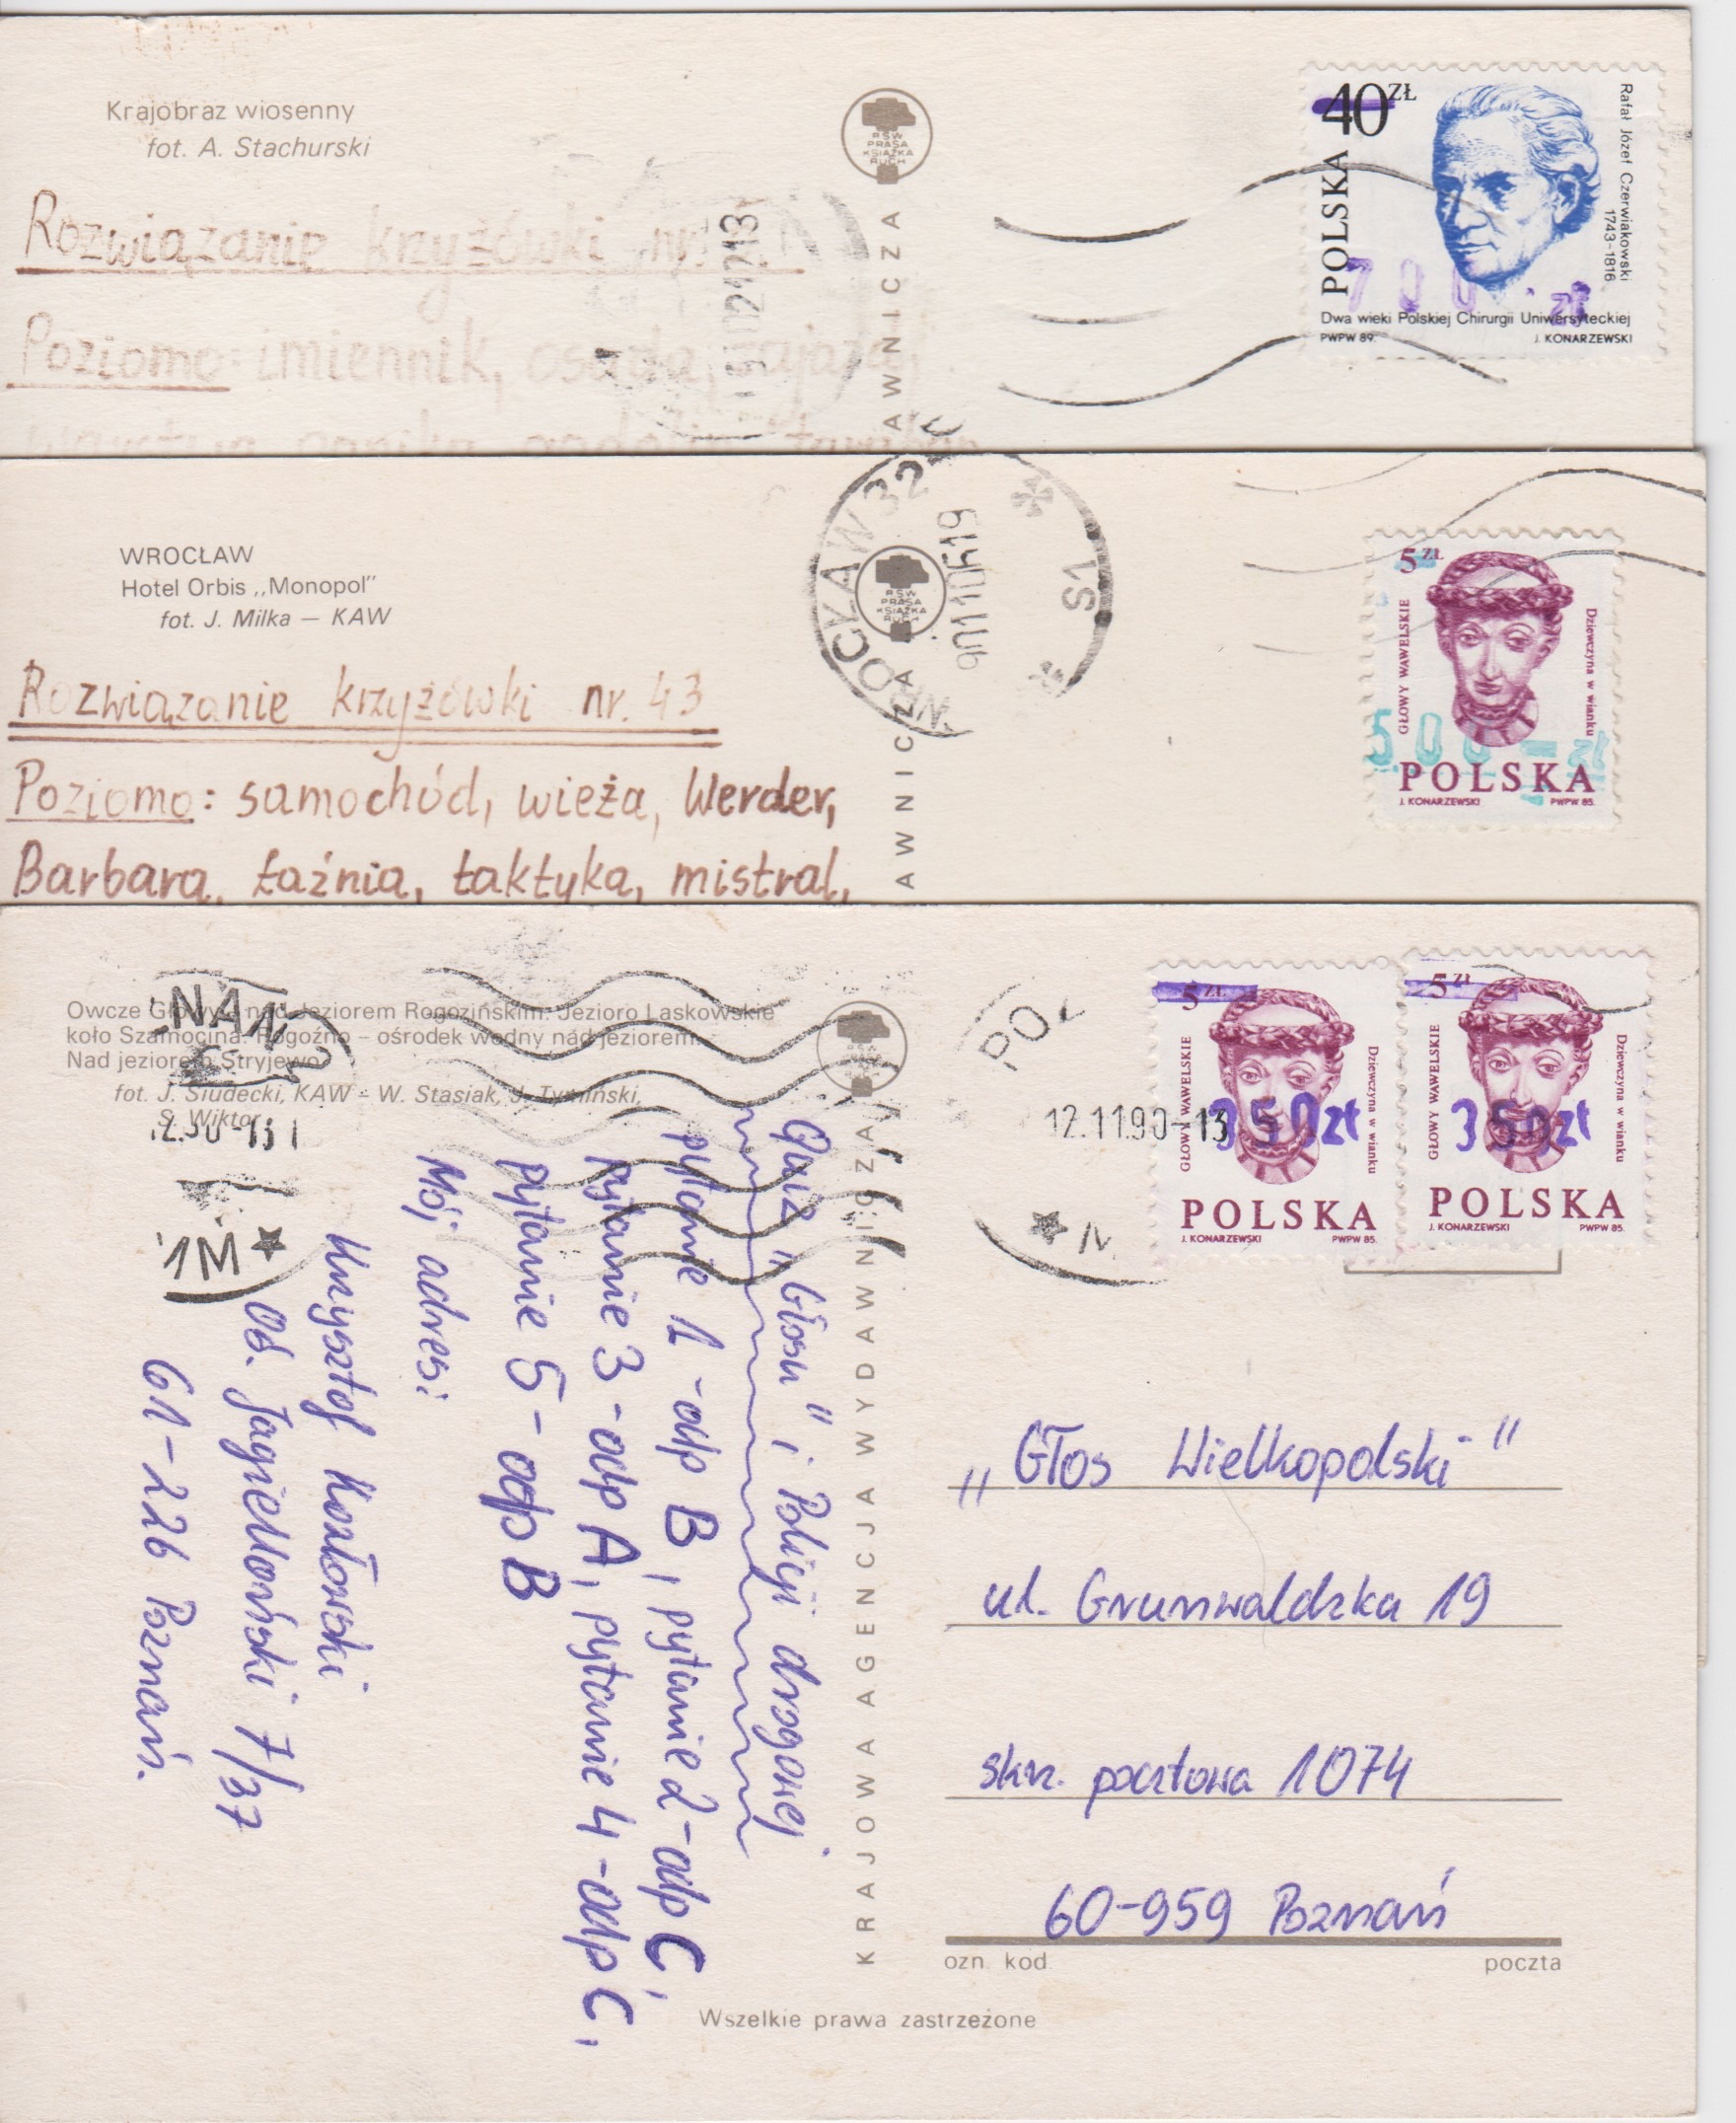 Krajobraz wiosenny
fot. A. Stachurski
RSW
PRASA
KSIĄŻKA
RUCH
Rozwiązanie krzyżówki nr.
Poziomo: imiennik, osada, zajazd,
AWNICZA
40 ZŁ
POLSKA
Rafał Józef Czerwiakowski
1743-1816
700.- zł
Dwa wieki Polskiej Chirurgii Uniwersyteckiej
PWPW 89.
J. KONARZEWSKI
WROCŁAW
Hotel Orbis „Monopol”
fot. J. Milka — KAW
RSW
PRASA
KSIĄŻKA
RUCH
WROCŁAW 32
S1
Rozwiązanie krzyżówki nr. 43
Poziomo: samochód, wieża, Werder,
Barbara, łaźnia, taktyka, mistral,
AWNICZA
5 ZŁ
GŁOWY WAWELSKIE
Dziewczyna w wianku
500 - zł
POLSKA
J. KONARZEWSKI
PWPW 85.
Owcze Głowy nad Jeziorem Rogozińskim. Jezioro Laskowskie
koło Szamocina. Rogoźno – ośrodek wodny nad jeziorem.
Nad jeziorem Stryjewo
fot. J. Siudecki, KAW – W. Stasiak, J. Tymiński,
S. Wiktor
Quiz „Głosu” i Policji drogowej
pytanie 1 - odp B, pytanie 2 - odp C,
pytanie 3 - odp A, pytanie 4 - odp C,
pytanie 5 - odp B
Mój adres:
Krzysztof Kozłowski
os. Jagiellońskie 7/37
61-226 Poznań.
KRAJOWA AGENCJA WYDAWNICZA
POZ
12.11.90-13
5 ZŁ
GŁOWY WAWELSKIE
Dziewczyna w wianku
350zł
POLSKA
J. KONARZEWSKI
PWPW 85.
5 ZŁ
GŁOWY WAWELSKIE
Dziewczyna w wianku
350zł
POLSKA
J. KONARZEWSKI
PWPW 85.
„Głos Wielkopolski”
ul. Grunwaldzka 19
skr. pocztowa 1074
60-959 Poznań
ozn. kod.
poczta
Wszelkie prawa zastrzeżone